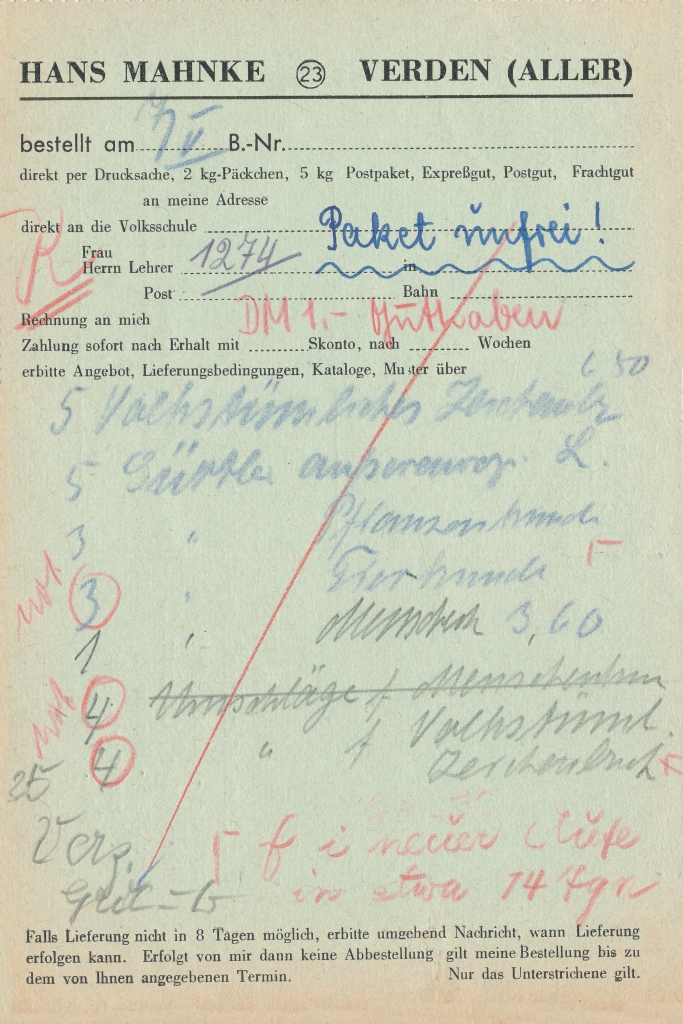 HANS MAHNKE (23) VERDEN (ALLER)
bestellt am 7/V B.-Nr.
direkt per Drucksache, 2 kg-Päckchen, 5 kg Postpaket, Expreßgut, Postgut, Frachtgut
an meine Adresse
direkt an die Volksschule Paket unfrei!
Frau
Herrn Lehrer 1274 in
R
Post Bahn
Rechnung an mich DM 1.- Guthaben
Zahlung sofort nach Erhalt mit Skonto, nach Wochen
erbitte Angebot, Lieferungsbedingungen, Kataloge, Muster über
50
5 Volkstümliches Zeichenb
5 Gürtler außereurop. L.
3 " Pflanzenkunde
3 " Tierkunde
1 " Mensch 3,60
4 Umschläge f. Menschenkun
4 " f Volkstüml.
25 Zeichenbuch
Verz.
f i neuer Aufl
in etwa 14 Tgn
Falls Lieferung nicht in 8 Tagen möglich, erbitte umgehend Nachricht, wann Lieferung
erfolgen kann. Erfolgt von mir dann keine Abbestellung gilt meine Bestellung bis zu
dem von Ihnen angegebenen Termin. Nur das Unterstrichene gilt.